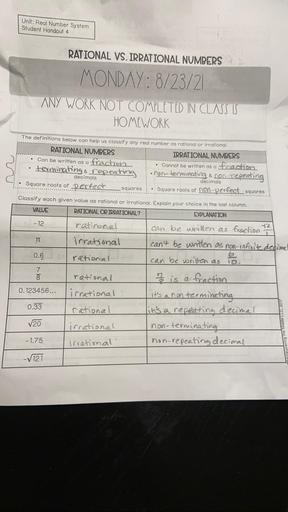 Unit: Real Number System
Student Handout 4
RATIONAL VS. IRRATIONAL NUMBERS
MONDAY: 8/23/21
ANY WORK NOT COMPLETED IN CLASS IS
HOMEWORK
The definitions below can help us classify any real number as rational or irrational.
RATIONAL NUMBERS
IRRATIONAL NUMBERS
• Can be written as a fraction
• terminating & repeating
decimals
• Square roots of perfect squares
• Cannot be written as a fraction
• non-terminating & non-repeating
decimals
• Square roots of non-perfect squares
Classify each given value as rational or irrational. Explain your choice in the last column.
VALUE RATIONAL OR IRRATIONAL? EXPLANATION
-12 rational can be written as fraction -12/1
π irrational can't be written as non-infinite decimal
0.6 rational can be written as 6/10
7/8 rational 7/8 is a fraction
0.123456... irrational it's a non terminating
0.33 rational it's a repeating decimal
√20 irrational non-terminating
-1.75 irrational non-repeating decimal
-√121